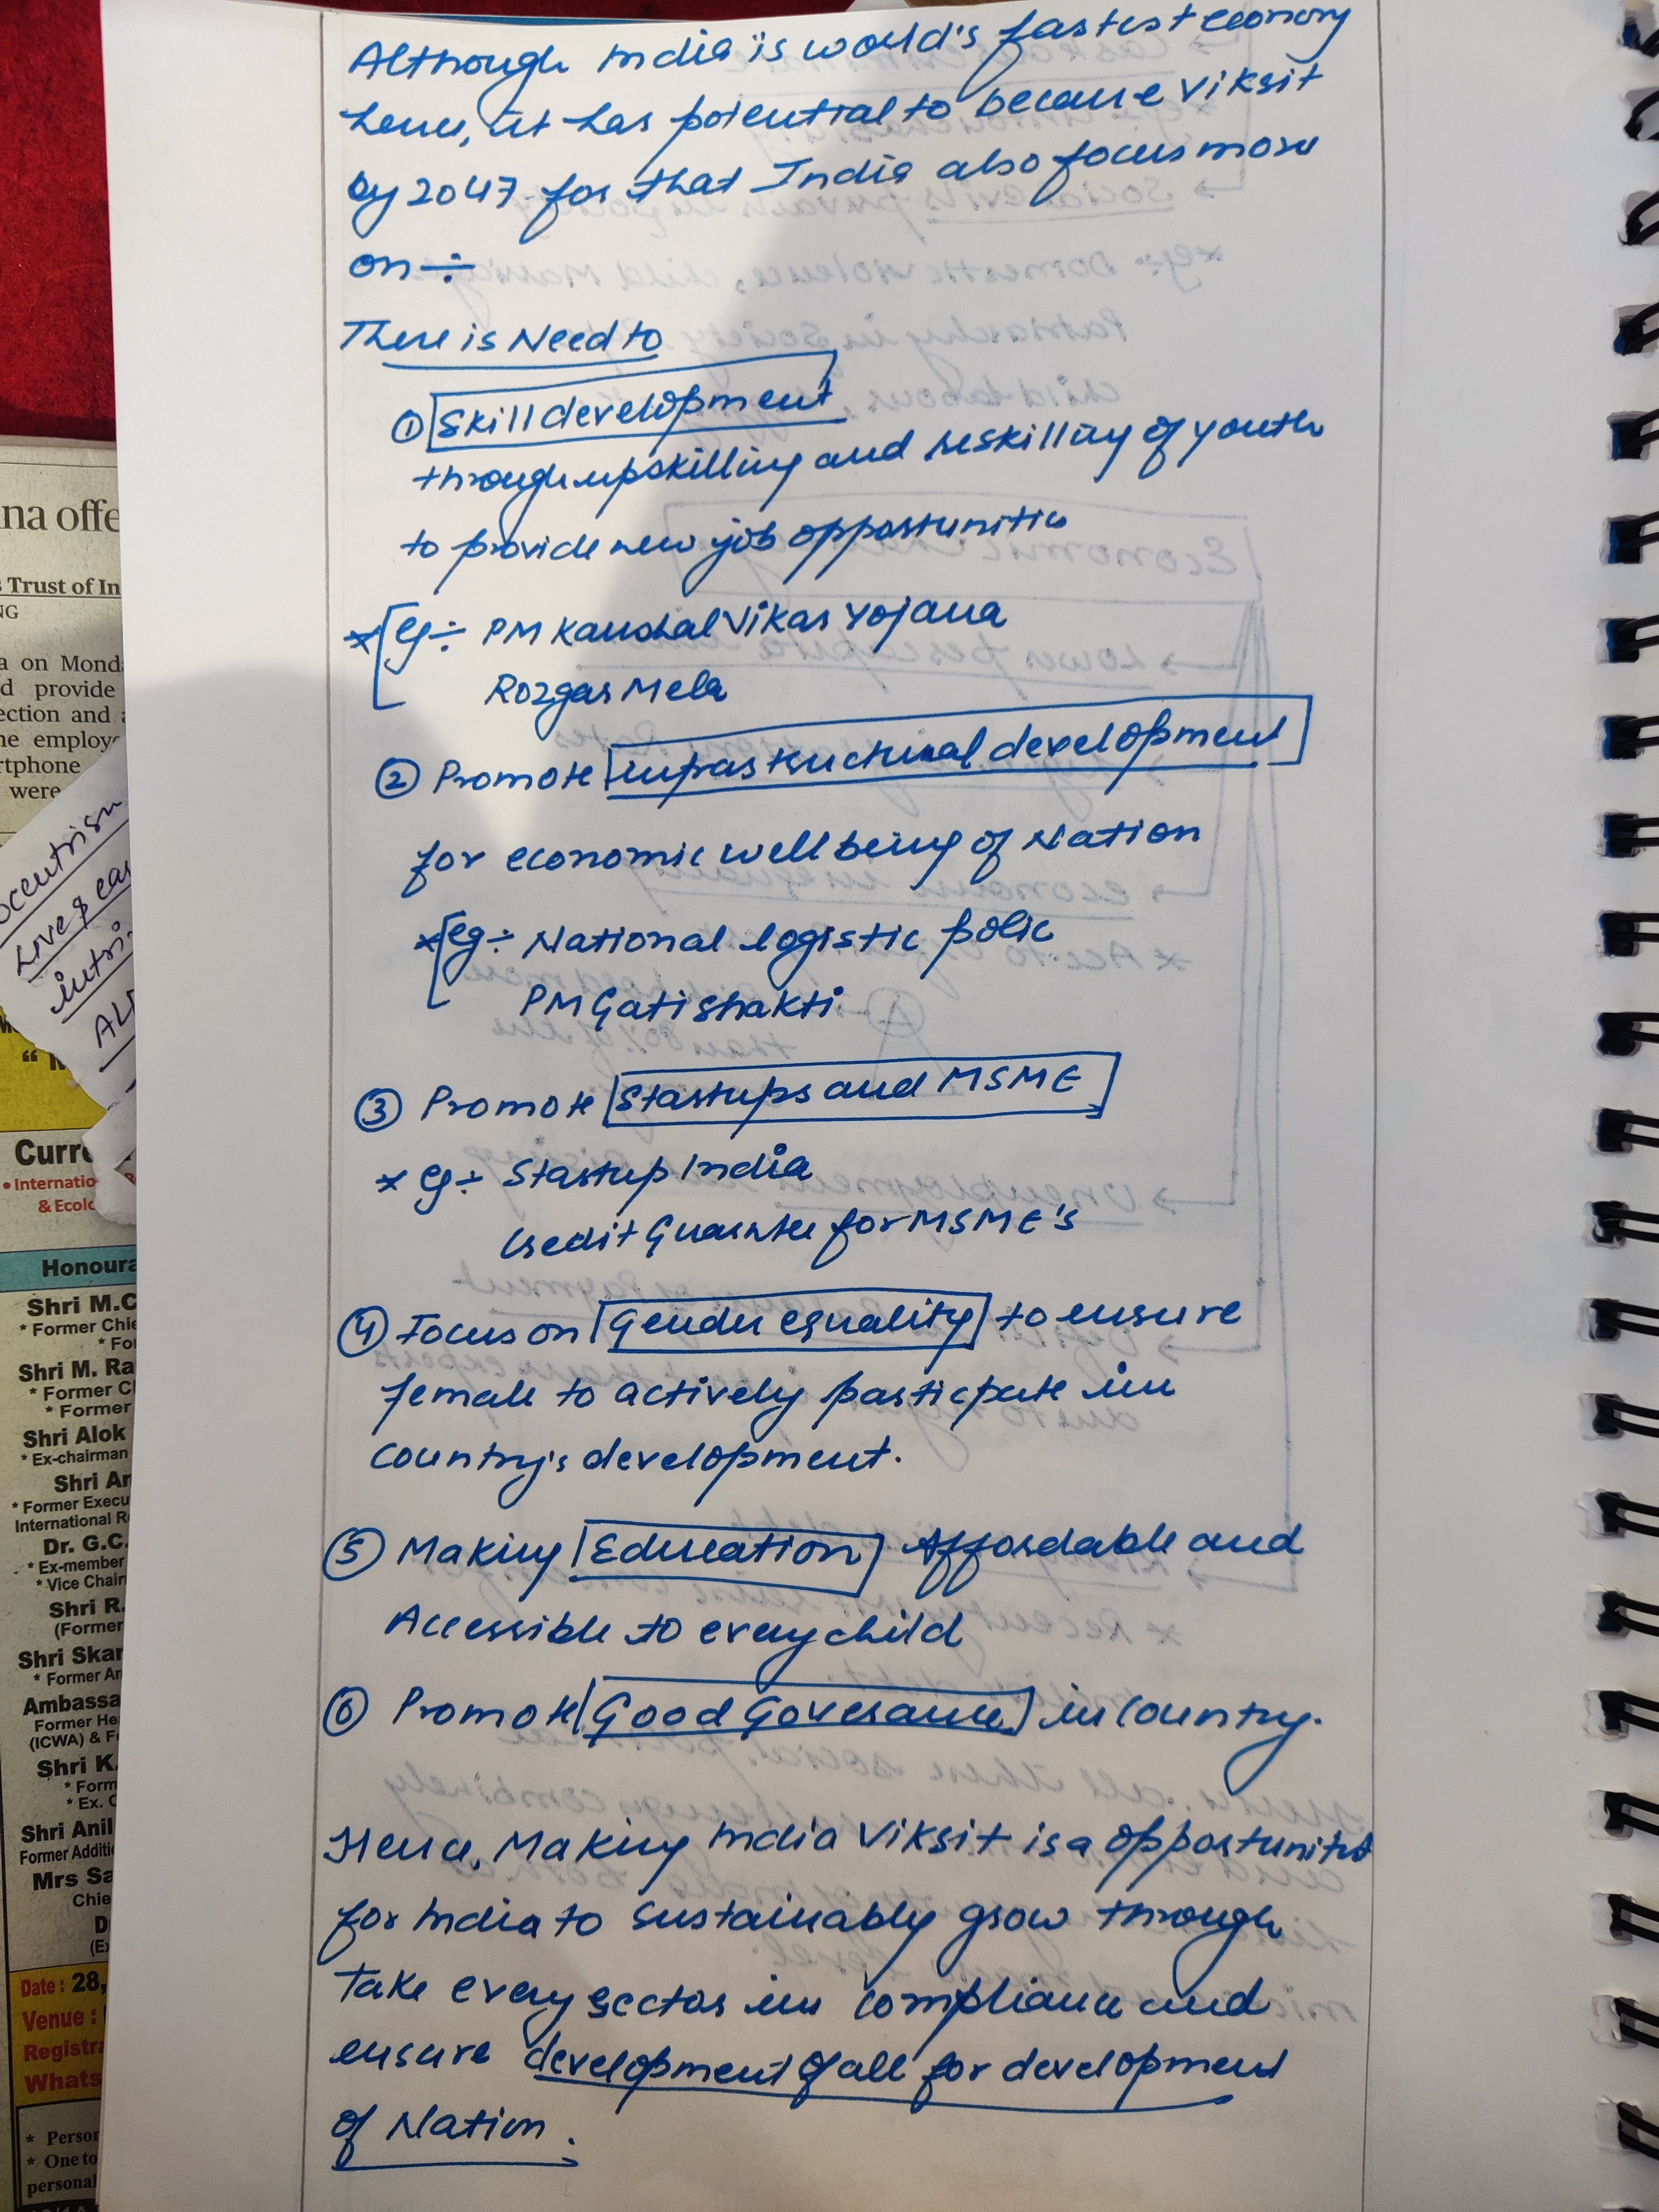 Although India is world's fastest economy
hence, it has potential to became Viksit
by 2047 for that India also focus more
on ÷
There is Need to
① Skill development
through upskilling and reskilling of youth
to provide new job opportunities
* eg ÷ PM Kaushal Vikas Yojana
Rozgar Mela
② Promote infrastructural development
for economic wellbeing of Nation
* eg ÷ National logistic polic
PM Gatishakti
③ Promote Startups and MSME
* eg ÷ Startup India
Credit Guarantee for MSME's
④ Focus on Gender equality to ensure
female to actively participate in
country's development.
⑤ Making Education Affordable and
Accessible to every child
⑥ Promote Good Goverance in country.
Hence, Making India Viksit is a opportunity
for India to sustainably grow through
take every sector in compliance and
ensure development of all for development
of Nation.
na offe
Trust of In
NG
a on Mond
d provide
ection and
he employ
rtphone
were
ocentrism
Live
intri
Curre
• Internatio
& Ecolo
Honoura
Shri M.C
* Former Chie
* Fo
Shri M. Ra
* Former C
* Former
Shri Alok
* Ex-chairman
Shri Ar
* Former Execu
International R
Dr. G.C.
* Ex-member
* Vice Chair
Shri R.
(Former
Shri Skan
* Former Am
Ambassa
Former He
(ICWA) & F
Shri K.
* Form
* Ex. C
Shri Anil
Former Additi
Mrs Sa
Chie
D
(Ex
Date : 28,
Venue :
Registra
Whats
* Person
* One to
personal